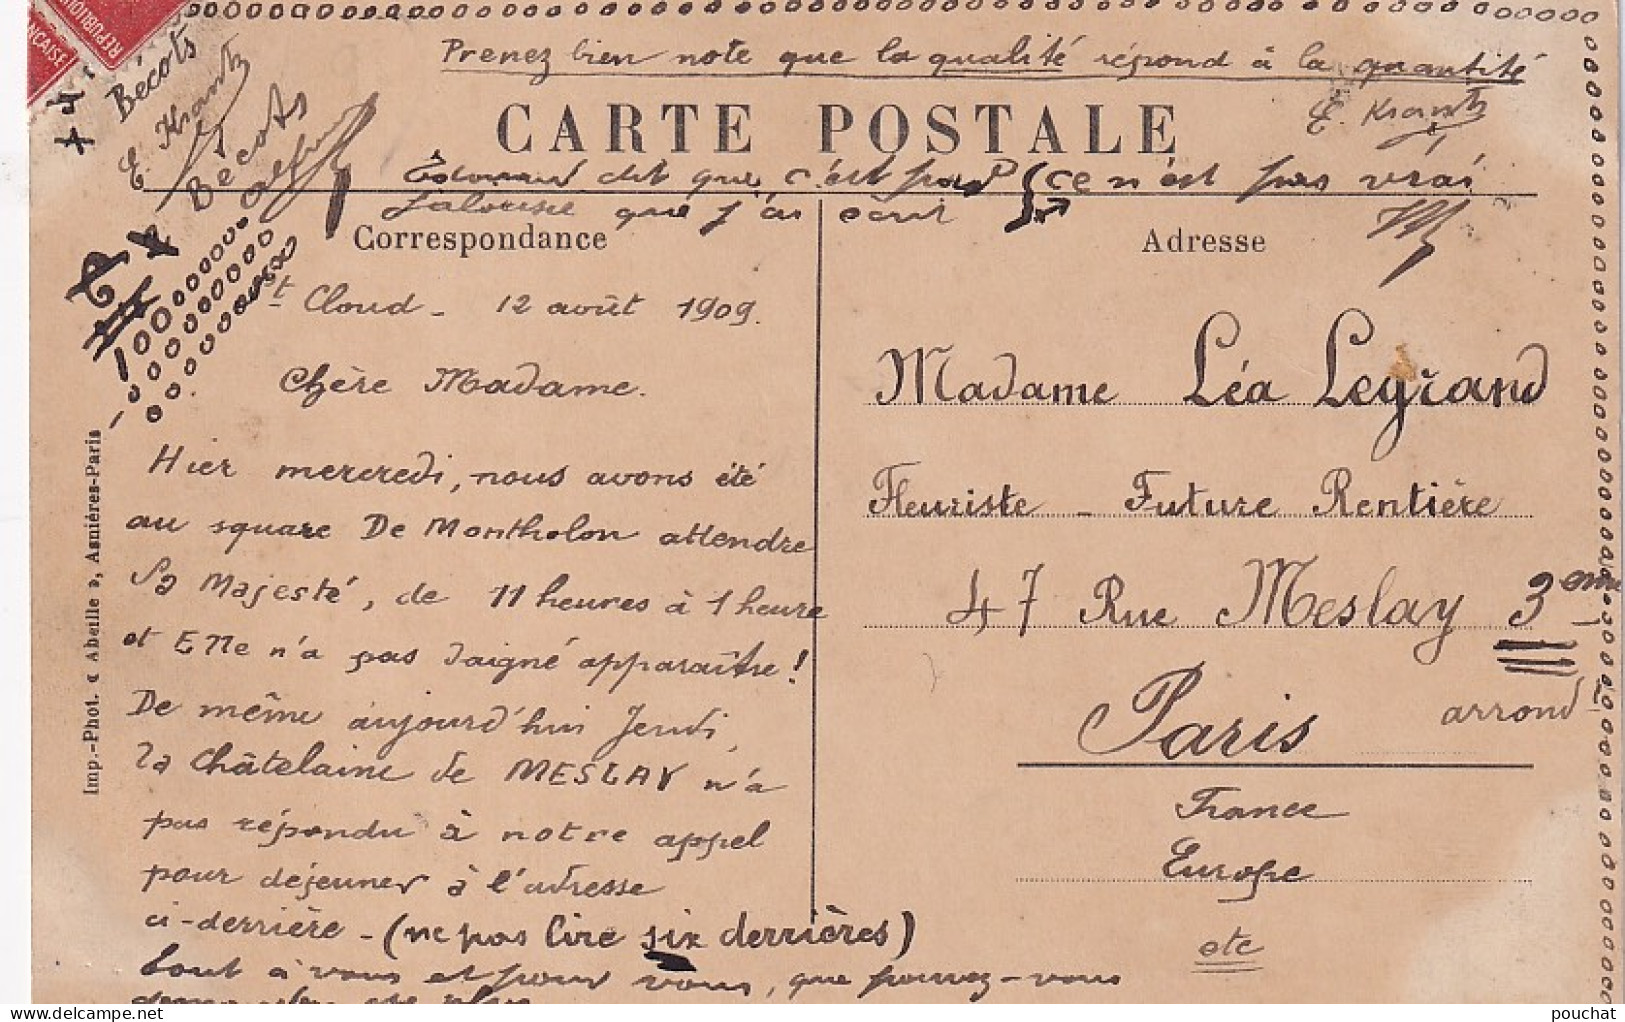 RÉPUBLIQUE
ÇAISE
Prenez bien note que la qualité répond à la quantité
E. Krantz
Bécots
E. Krantz
Bécots
CARTE POSTALE
dit que c'est par ce n'est pas vrai
jalousie que j'ai écrit
Correspondance
Adresse
100000000
St Cloud - 12 août 1909.
Chère Madame.
Hier mercredi, nous avons été
au square De Montholon attendre
Sa Majesté, de 11 heures à 1 heure
et Elle n'a pas daigné apparaître!
De même aujourd'hui Jeudi,
la Châtelaine de MESLAY n'a
pas répondu à notre appel
pour déjeuner à l'adresse
ci-derrière - (ne pas lire six derrières)
tout à vous et pour vous, que pouvez-vous
demander de plus
Madame Léa Legrand
Fleuriste - Future Rentière
47 Rue Meslay 3eme
arrond
Paris
France
Europe
etc
Imp.-Phot. « Abeille », Asnières-Paris
pouchat